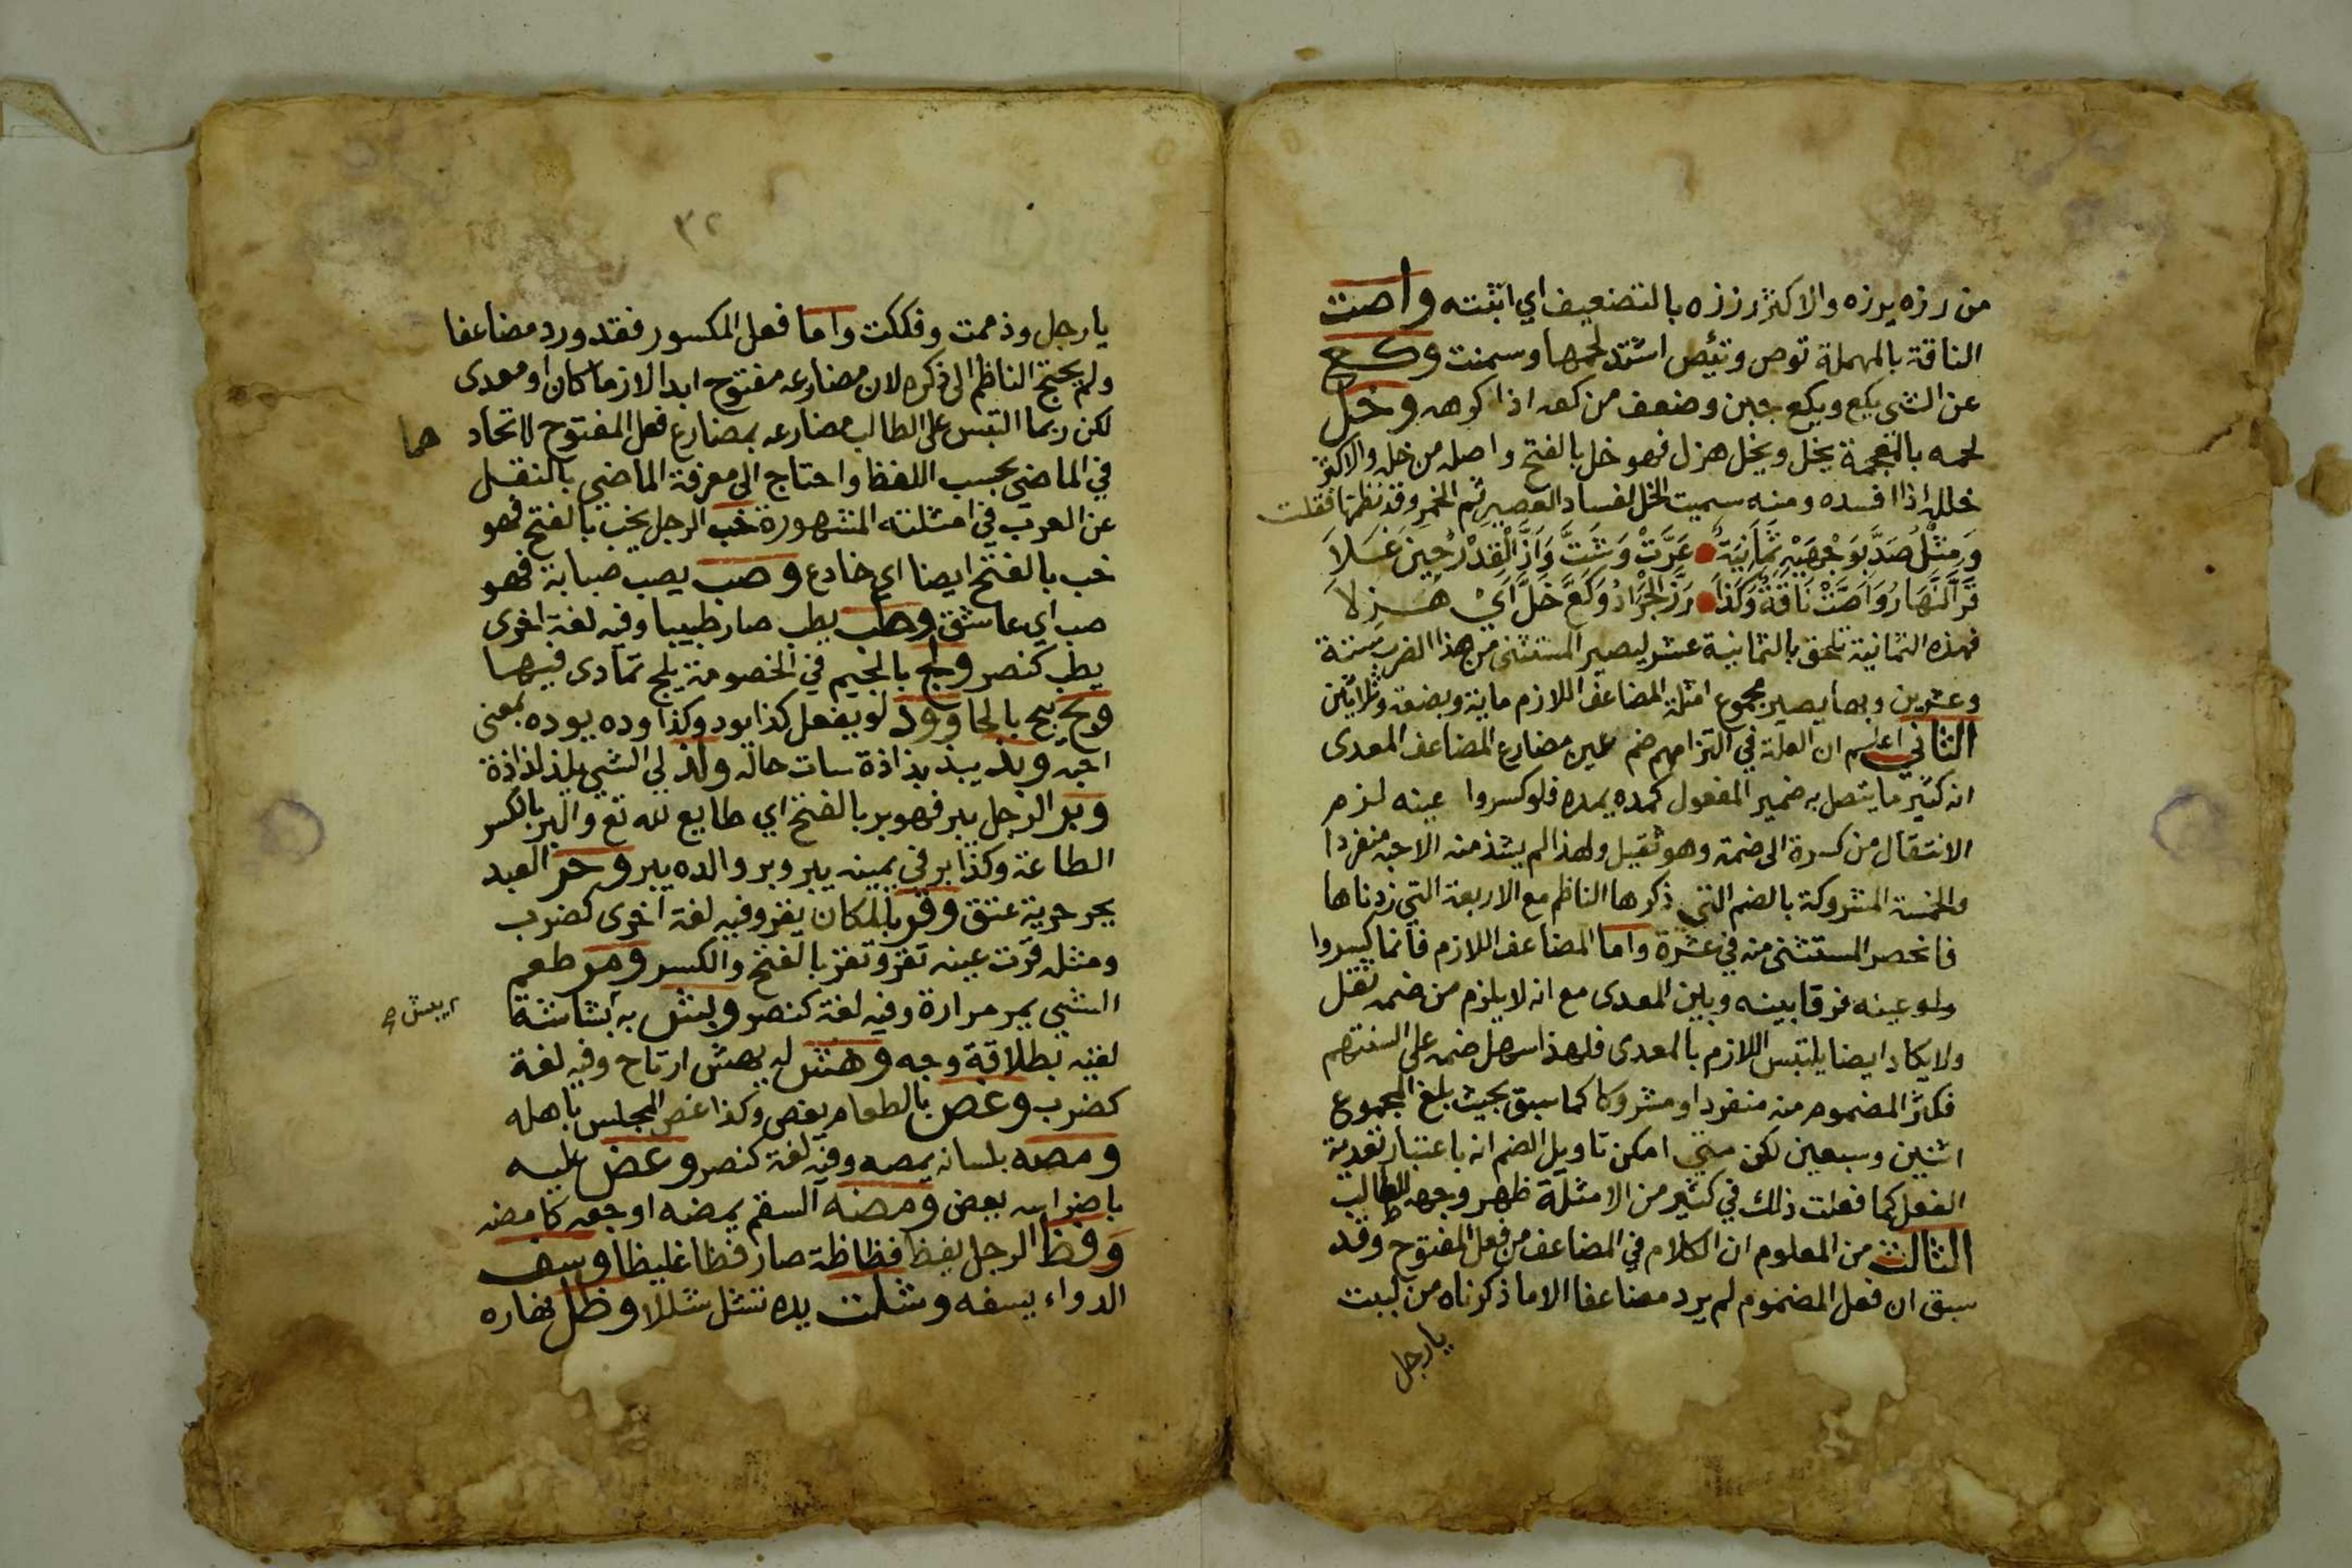 من رزه يرزه والاكثر رززه بالتضعيف اي اثبته واصت
الناقة بالمهملة توص وتئص اشتد لحمها وسمنت وكع
عن الشي يكع ويكع جبن وضعف من كعه اذا كرهه وخل
لحمه بالمعجمة يخل ويخل هزل فهو خل بالفتح واصله من خله والاكثر
خلله اذا افسده ومنه سميت الخل لفساد العصير ثم الخمر وقد نظمتها فقلت
وَمِثْلُ صَدَّ بِوَجْهَيْهِ ثَمَانِيَةٌ عَرَّتْ وَشَتَّ وَازَّ الْقِدْرُ حِينَ غَلَا
قَرَّ النَّهَارُ وَاَصَّتْ نَاقَةٌ وَكَذَا رَزَّ الْجَرَادُ وَكَعَّ خَلَّ اَيْ هَزِلَا
فهذه الثمانية تلحق بالثمانية عشر ليصير المستثنى من هذا الضرب ستة
وعشرين وبها يصير مجموع امثلة المضاعف اللازم ماية وبضعة وثلاثين
الثاني اعلم ان العلة في التزامهم ضم عين مضارع المضاعف المعدى
انه كثير ما يتصل به ضمير المفعول كمده يمده فلو كسروا عينه لزم
الانتقال من كسرة الى ضمة وهو ثقيل ولهذا لم يشذ منه الا حبه منفردا
والخمسة المشروكة بالضم التي ذكرها الناظم مع الاربعة التي زدناها
فانحصر المستثنى منه في عشرة واما المضاعف اللازم فانما كسروا
ولو عينه فرقا بينه وبين المعدى مع انه لا يلزم من ضمه ثقل
ولا يكاد ايضا يلتبس اللازم بالمعدى فلهذا سهل ضمه على السنتهم
فكثر المضموم منه منفردا ومشروكا كما سبق بحيث بلغ المجموع
اثنين وسبعين لكن متى امكن تاويل الضم انه باعتبار تعدية
الفعل كما فعلت ذلك في كثير من الامثلة ظهر وجهه للطالب
الثالث من المعلوم ان الكلام في المضاعف من فعل المفتوح وقد
سبق ان فعل المضموم لم يرد مضاعفا الا ما ذكرناه من لببت
يا رجل
٣٢
يا رجل وذممت وفككت واما فعل المكسور فقد ورد مضاعفا
ولم يحتج الناظم الى ذكره لان مضارعه مفتوح ابدا لازما كان او معدى
لكن ربما التبس على الطالب مضارعه بمضارع فعل المفتوح لاتحاد هما
في الماضي بحسب اللفظ واحتاج الى معرفة الماضي بالنقل
عن العرب في امثلته المشهورة خب الرجل يخب بالفتح فهو
خب بالفتح ايضا اي خادع وصب يصب صبابة فهو
صب اي عاشق وطب يطب صار طبيبا وفيه لغة اخرى
يطب كنصر ولج بالجيم في الخصومة يلج تمادى فيها
وبح يبح بالحا وود لو يفعل كذا يود وكذا وده يوده بمعنى
احبه وبذ يبذ بذاذة سات حاله ولذ لي الشي يلذ لذاذة
وبر الرجل يبر فهو بر بالفتح اي طايع لله تع والبر بالكسر
الطاعة وكذا بر في يمينه يبر وبر والده يبر وحر العبد
يحر حرية عتق وقر بالمكان يقر وفيه لغة اخرى كضرب
ومثله قرت عينه تقر وتقر بالفتح والكسر ومر طعم
الشي يمر مرارة وفيه لغة كنصر وبش به بشاشة
يبش
لقيه بطلاقة وجه وهش له يهش ارتاح وفيه لغة
كضرب وغص بالطعام يغص وكذا غص المجلس باهله
ومصه بلسانه يمصه وفيه لغة كنصر وعض عليه
باضراسه يعض ومضه السقم يمضه اوجعه كامضه
وفظ الرجل يفظ فظاظة صار فظا غليظا وسف
الدواء يسفه وشلت يده تشل شللا وظل نهاره